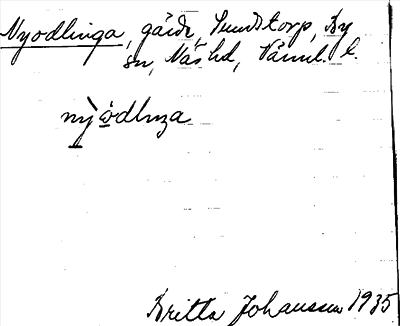 Nyodlinga, gärde, Sundstorp, By
sn, Näs hd, Värml. l.
nỳödlıŋa
Britta Johansson 1935